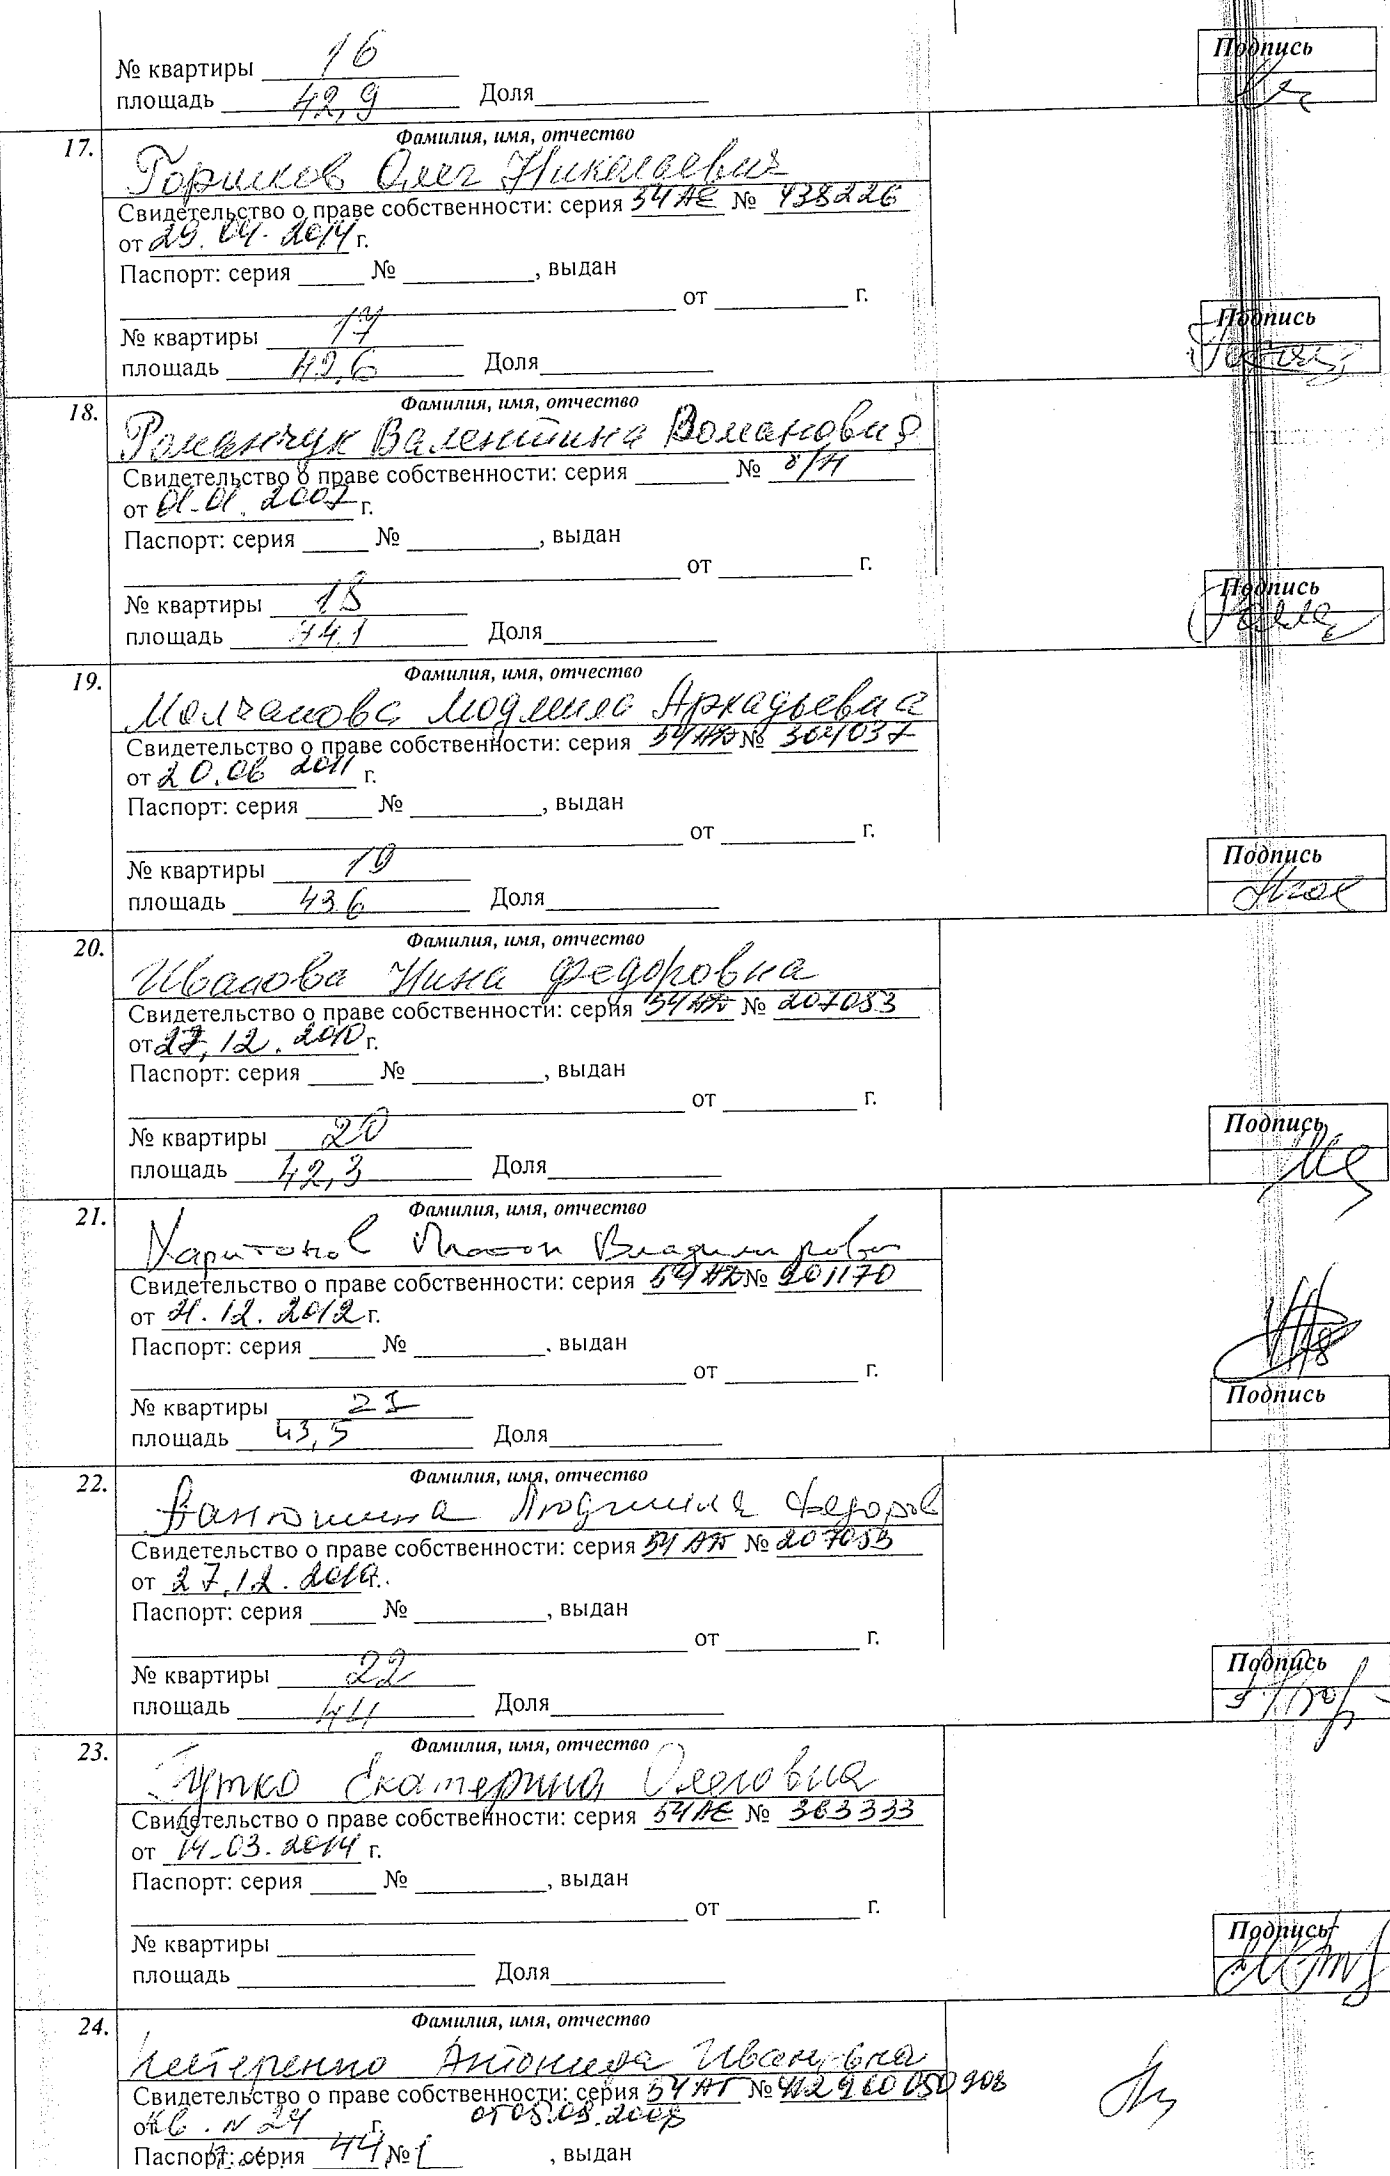 № квартиры 16
площадь 42,9 Доля
Подпись
17.
Фамилия, имя, отчество
Горшков Олег Николаевич
Свидетельство о праве собственности: серия 54 АЕ № 438226
от 29.04.2014 г.
Паспорт: серия № , выдан
от г.
№ квартиры 17
площадь 42,6 Доля
Подпись
18.
Фамилия, имя, отчество
Романчук Валентина Романовна
Свидетельство о праве собственности: серия № б/н
от 01.01.2007 г.
Паспорт: серия № , выдан
от г.
№ квартиры 18
площадь 74.1 Доля
Подпись
19.
Фамилия, имя, отчество
Молчанова Людмила Аркадьевна
Свидетельство о праве собственности: серия 54 АД № 304037
от 20.06 2011 г.
Паспорт: серия № , выдан
от г.
№ квартиры 19
площадь 43.6 Доля
Подпись
20.
Фамилия, имя, отчество
Иванова Нина Федоровна
Свидетельство о праве собственности: серия 54 АД № 207053
от 27.12.2010 г.
Паспорт: серия № , выдан
от г.
№ квартиры 20
площадь 42,3 Доля
Подпись
21.
Фамилия, имя, отчество
Харитонов Платон Владимирович
Свидетельство о праве собственности: серия 54 АД № 201170
от 21.12.2012 г.
Паспорт: серия № , выдан
от г.
№ квартиры 21
площадь 43,5 Доля
Подпись
22.
Фамилия, имя, отчество
Людмила Федоров
Свидетельство о праве собственности: серия 54 АД № 207053
от 27.12.2010 г.
Паспорт: серия № , выдан
от г.
№ квартиры 22
площадь 44 Доля
Подпись
23.
Фамилия, имя, отчество
Гутко Екатерина Олеговна
Свидетельство о праве собственности: серия 54 АЕ № 363333
от 14.03.2014 г.
Паспорт: серия № , выдан
от г.
№ квартиры
площадь Доля
Подпись
24.
Фамилия, имя, отчество
Нестеренко Антонида Ивановна
Свидетельство о праве собственности: серия 54 АГ №
от кв. N 24 г. от 05.09.2008
Паспорт: серия 44,1 № , выдан